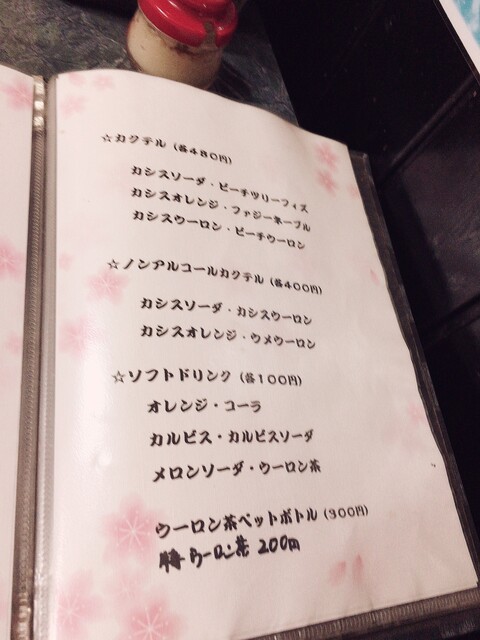 ☆カクテル（各480円）
カシスソーダ・ピーチツリーフィズ
カシスオレンジ・ファジーネーブル
カシスウーロン・ピーチウーロン
☆ノンアルコールカクテル（各400円）
カシスソーダ・カシスウーロン
カシスオレンジ・ウメウーロン
☆ソフトドリンク（各100円）
オレンジ・コーラ
カルピス・カルピスソーダ
メロンソーダ・ウーロン茶
ウーロン茶ペットボトル（300円）
ウーロン茶 200円